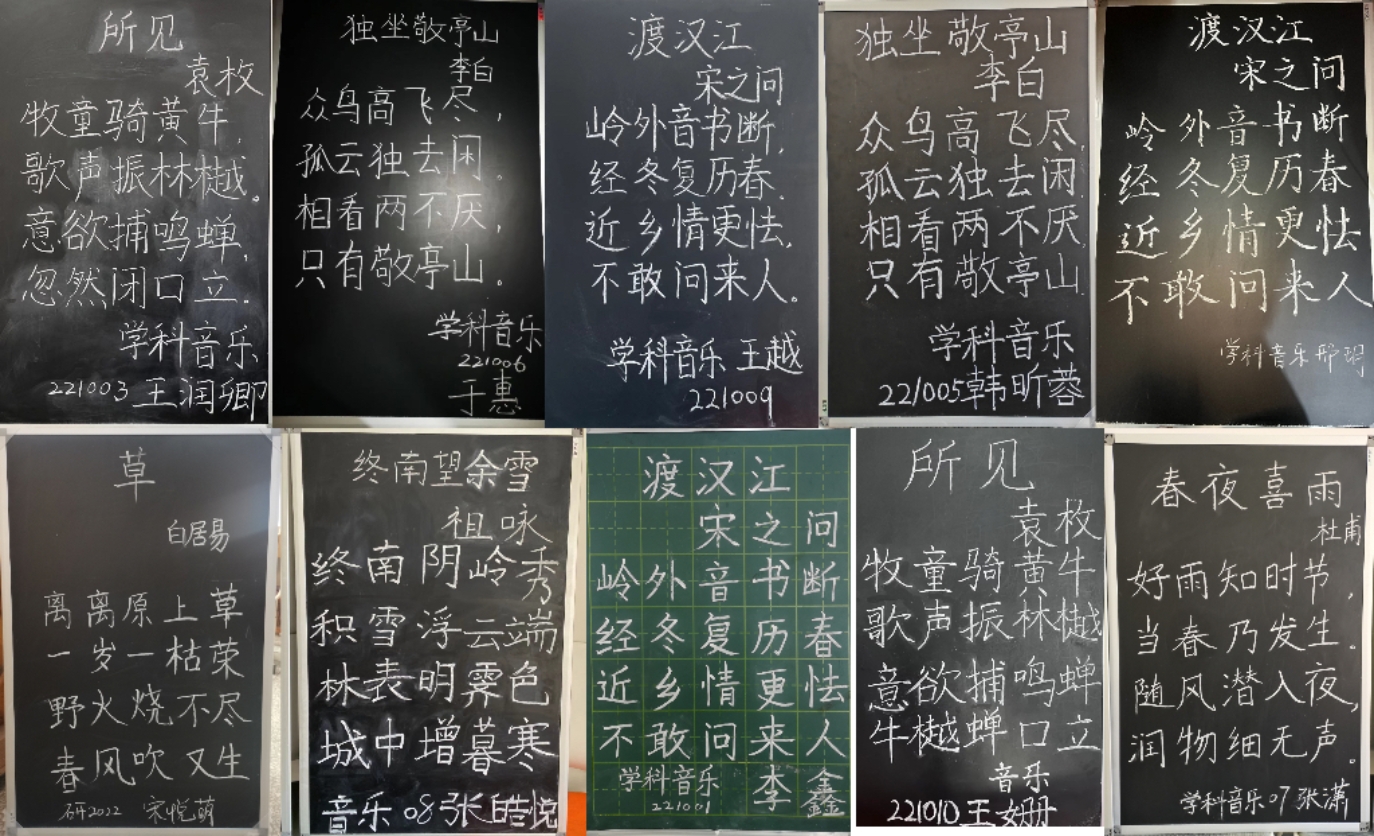 所见
袁枚
牧童骑黄牛,
歌声振林樾。
意欲捕鸣蝉,
忽然闭口立.
学科音乐
221003 王润卿
独坐敬亭山
李白
众鸟高飞尽,
孤云独去闲。
相看两不厌,
只有敬亭山。
学科音乐
221006
于惠
渡汉江
宋之问
岭外音书断,
经冬复历春.
近乡情更怯,
不敢问来人。
学科音乐 王越
221009
独坐敬亭山
李白
众鸟高飞尽,
孤云独去闲.
相看两不厌,
只有敬亭山
学科音乐
221005韩昕蓉
渡汉江
宋之问
岭外音书断
经冬复历春
近乡情更怯
不敢问来人
学科音乐邢玥
草
白居易
离离原上草
一岁一枯荣
野火烧不尽
春风吹又生
研2022 宋悦萌
终南望余雪
祖咏
终南阴岭秀
积雪浮云端
林表明霁色
城中增暮寒
音乐08张皓悦
渡汉江
宋之问
岭外音书断
经冬复历春
近乡情更怯
不敢问来人
学科音乐 李鑫
221001
所见
袁枚
牧童骑黄牛
歌声振林樾
意欲捕鸣蝉
牛樾蝉口立
音乐
221010王姗
春夜喜雨
杜甫
好雨知时节,
当春乃发生。
随风潜入夜,
润物细无声。
学科音乐07张潇